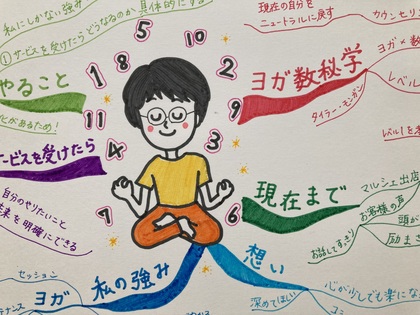 私にしかない強み
①サービスを受けたらどうなるのか具体的にする
やること
化があるため!
サービスを受けたら
自分のやりたいこと
未来を明確にできる
5
10
8
1
2
11
9
4
3
7
6
現在の自分を
ニュートラルに戻す
カウンセリ
ヨガ数秘学
ヨガ×数
レベル
タイラー・モンガン
レベル1を
現在まで
マルシェ出店
お客様の声
頭が
お話してすっきり
励まさ
私の強み
セッション
ヨガ
想い
心が少しでも楽にな
深めてほしい